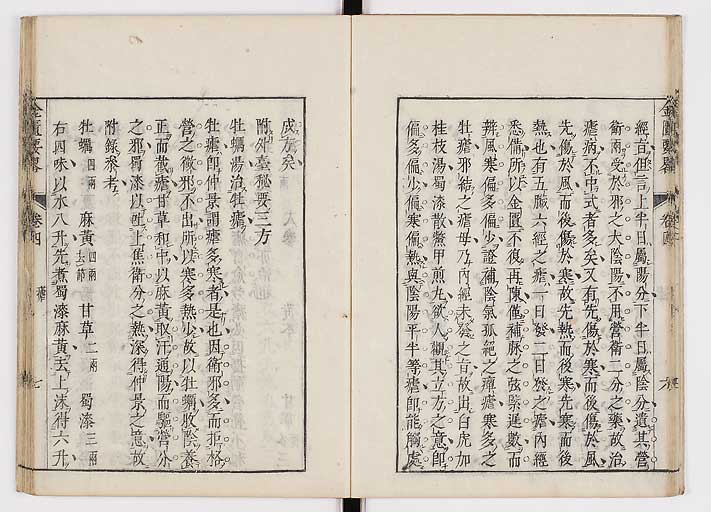 經旨但言上半日屬陽分下半日屬陰分遺其營
衛兩受於邪之大陰陽不用營衛二分之藥故治
瘧病不中式者多矣又有先傷於寒而後傷於風
先傷於風而後傷於寒故先熱而後寒先寒而後
熱也有五臟六經之瘧一日發二日發之瘧內經
悉備所以金匱不復再陳僅補脉之弦緊遲數而
辨風寒偏多偏少證補陰氣孤絕之癉瘧寒多之
牡瘧邪結之瘧母乃內經未發之旨故出白虎加
桂枝湯蜀漆散鱉甲煎丸欲人觀其立方之意卽
偏多偏少偏寒偏熱與陰陽平半等瘧卽能觸處
金匱要畧
卷四
六
成方矣
附外臺秘要三方
牡蠣湯治牡瘧
牡瘧卽仲景謂瘧多寒者是也因衛邪多而拒格
營之微邪不出所以寒多熱少故以牡蠣收陰養
正而截瘧甘草和中以麻黃取汗通陽而驅營分
之邪蜀漆以吐上焦衛分之熱深得仲景之意故
附錄參考
牡蠣四兩 麻黃四兩去節 甘草二兩 蜀漆三兩
右四味以水八升先煮蜀漆麻黃去上沫得六升
金匱要畧
卷四
瘧
七